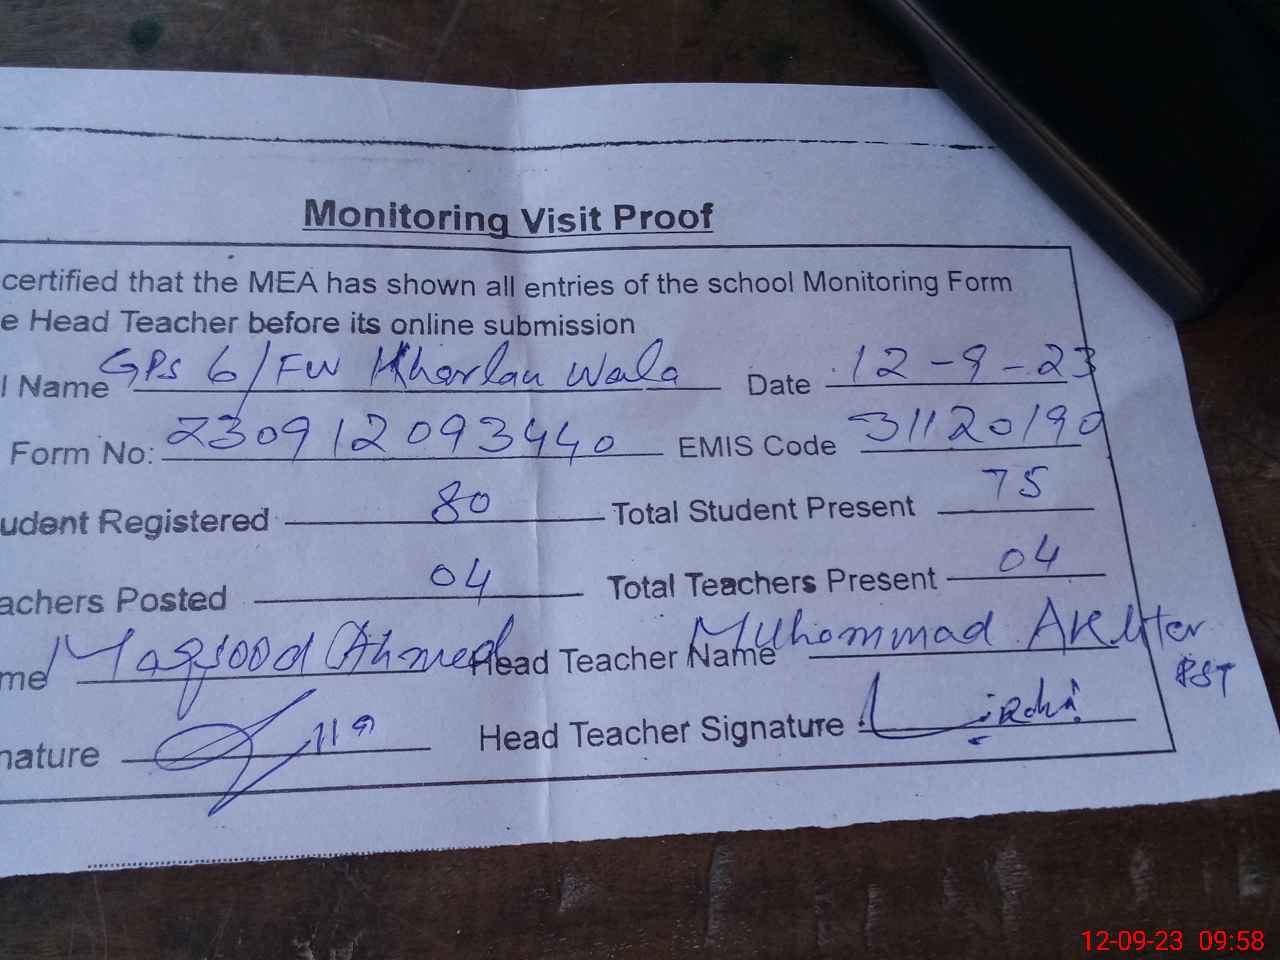 Monitoring Visit Proof
certified that the MEA has shown all entries of the school Monitoring Form
e Head Teacher before its online submission
l Name GPS 6/FW Kharlan Wala Date 12-9-23
Form No: 230912093440 EMIS Code 31120190
udent Registered 80 Total Student Present 75
achers Posted 04 Total Teachers Present 04
me Maqsood Ahmed Head Teacher Name Muhammad Akhter
PST
nature Head Teacher Signature
12-09-23 09:58